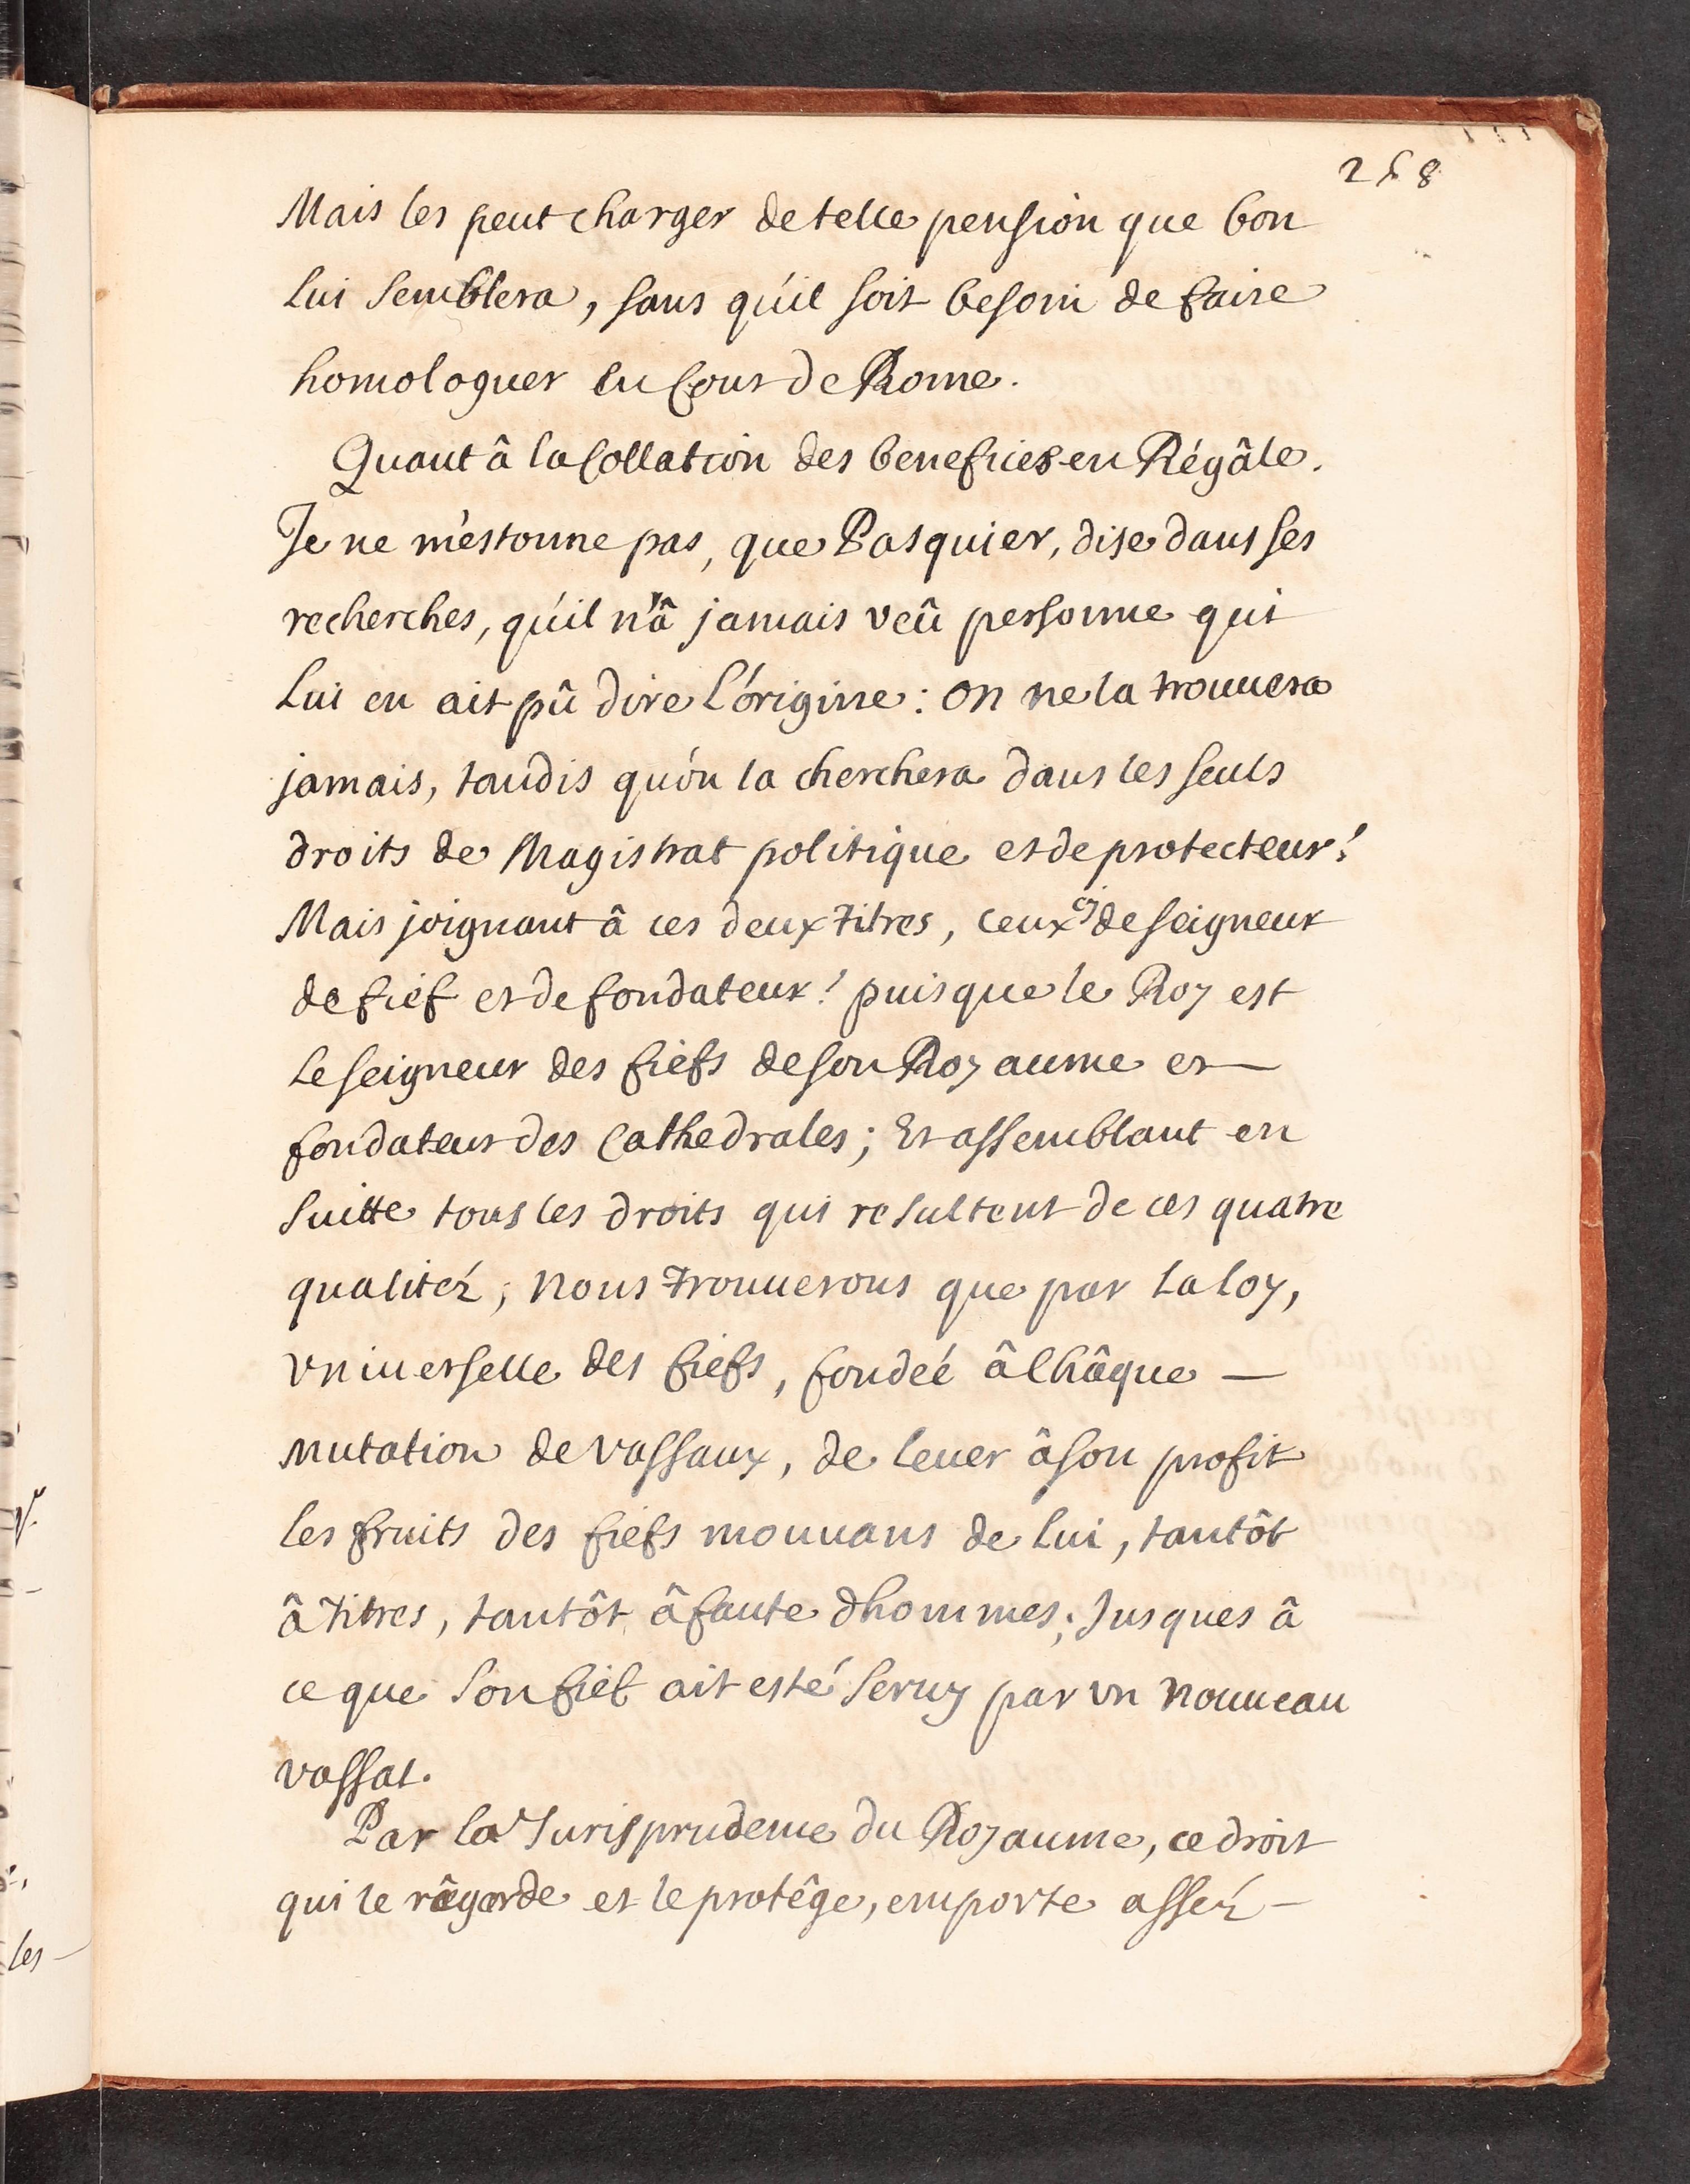 258
Mais les peut charger de telle pension que bon
Lui Semblera, sans qu'il soit besoin de faire
homologuer en Cour de Rome.
Quant â la Collation des benefices en Régâle.
Je ne m'estonne pas, que Pasquier, dise dans ses
recherches, qu'il n'â jamais veû personne qui
Lui en ait pû dire L'origine: on ne la trouuera
jamais, tandis qu'on la cherchera dans les seuls
droits de Magistrat politique et de protecteur!
Mais joignant â ces deux Titres, ceux cy de seigneur
de fief et de fondateur! puis que le Roy est
Le seigneur des fiefs de son Royaume et —
fondateur des Cathedrales; Et assemblant en
Suitte tous les droits qui resultent de ces quatre
qualitéz, nous trouuerons que par La loy,
vniuerselle des fiefs, fondeé â Châque —
mutation de vassaux, de leuer â son profit
les fruits des fiefs mouuans de Lui, tantôt
â Titres, tantôt â faute dhommes; Jusques â
ce que Son fief ait esté Seruy par vn nouueau
vassal.
Par la Jurisprudence du Royaume, ce droit
qui le râgarde et le protêge, emporte asséz —
les —